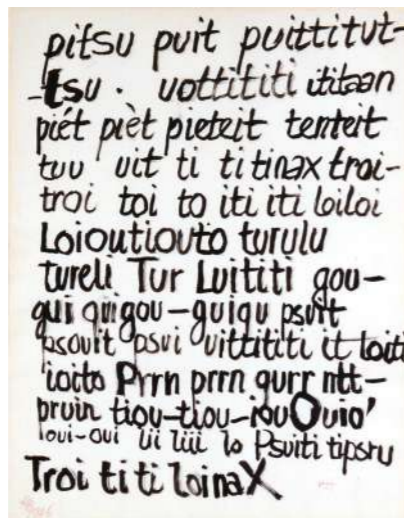 pitsu puit puittitut-
-tsu . uottititi ititaan
piét pièt pieteit tenteit
tuu uit ti ti tinax troi-
troi toi to iti iti loiloi
Loioutiouto turulu
tureli Tur Luititi gou-
gui gui gou-guigu psuit
psouit psui uittititi it loiti
ioito Prrn prrn qurr ntt-
pruin tiou-tiou-iou Ouio'
loui-oui lii liii lo Psuiti tipsru
Troi ti ti loinaX